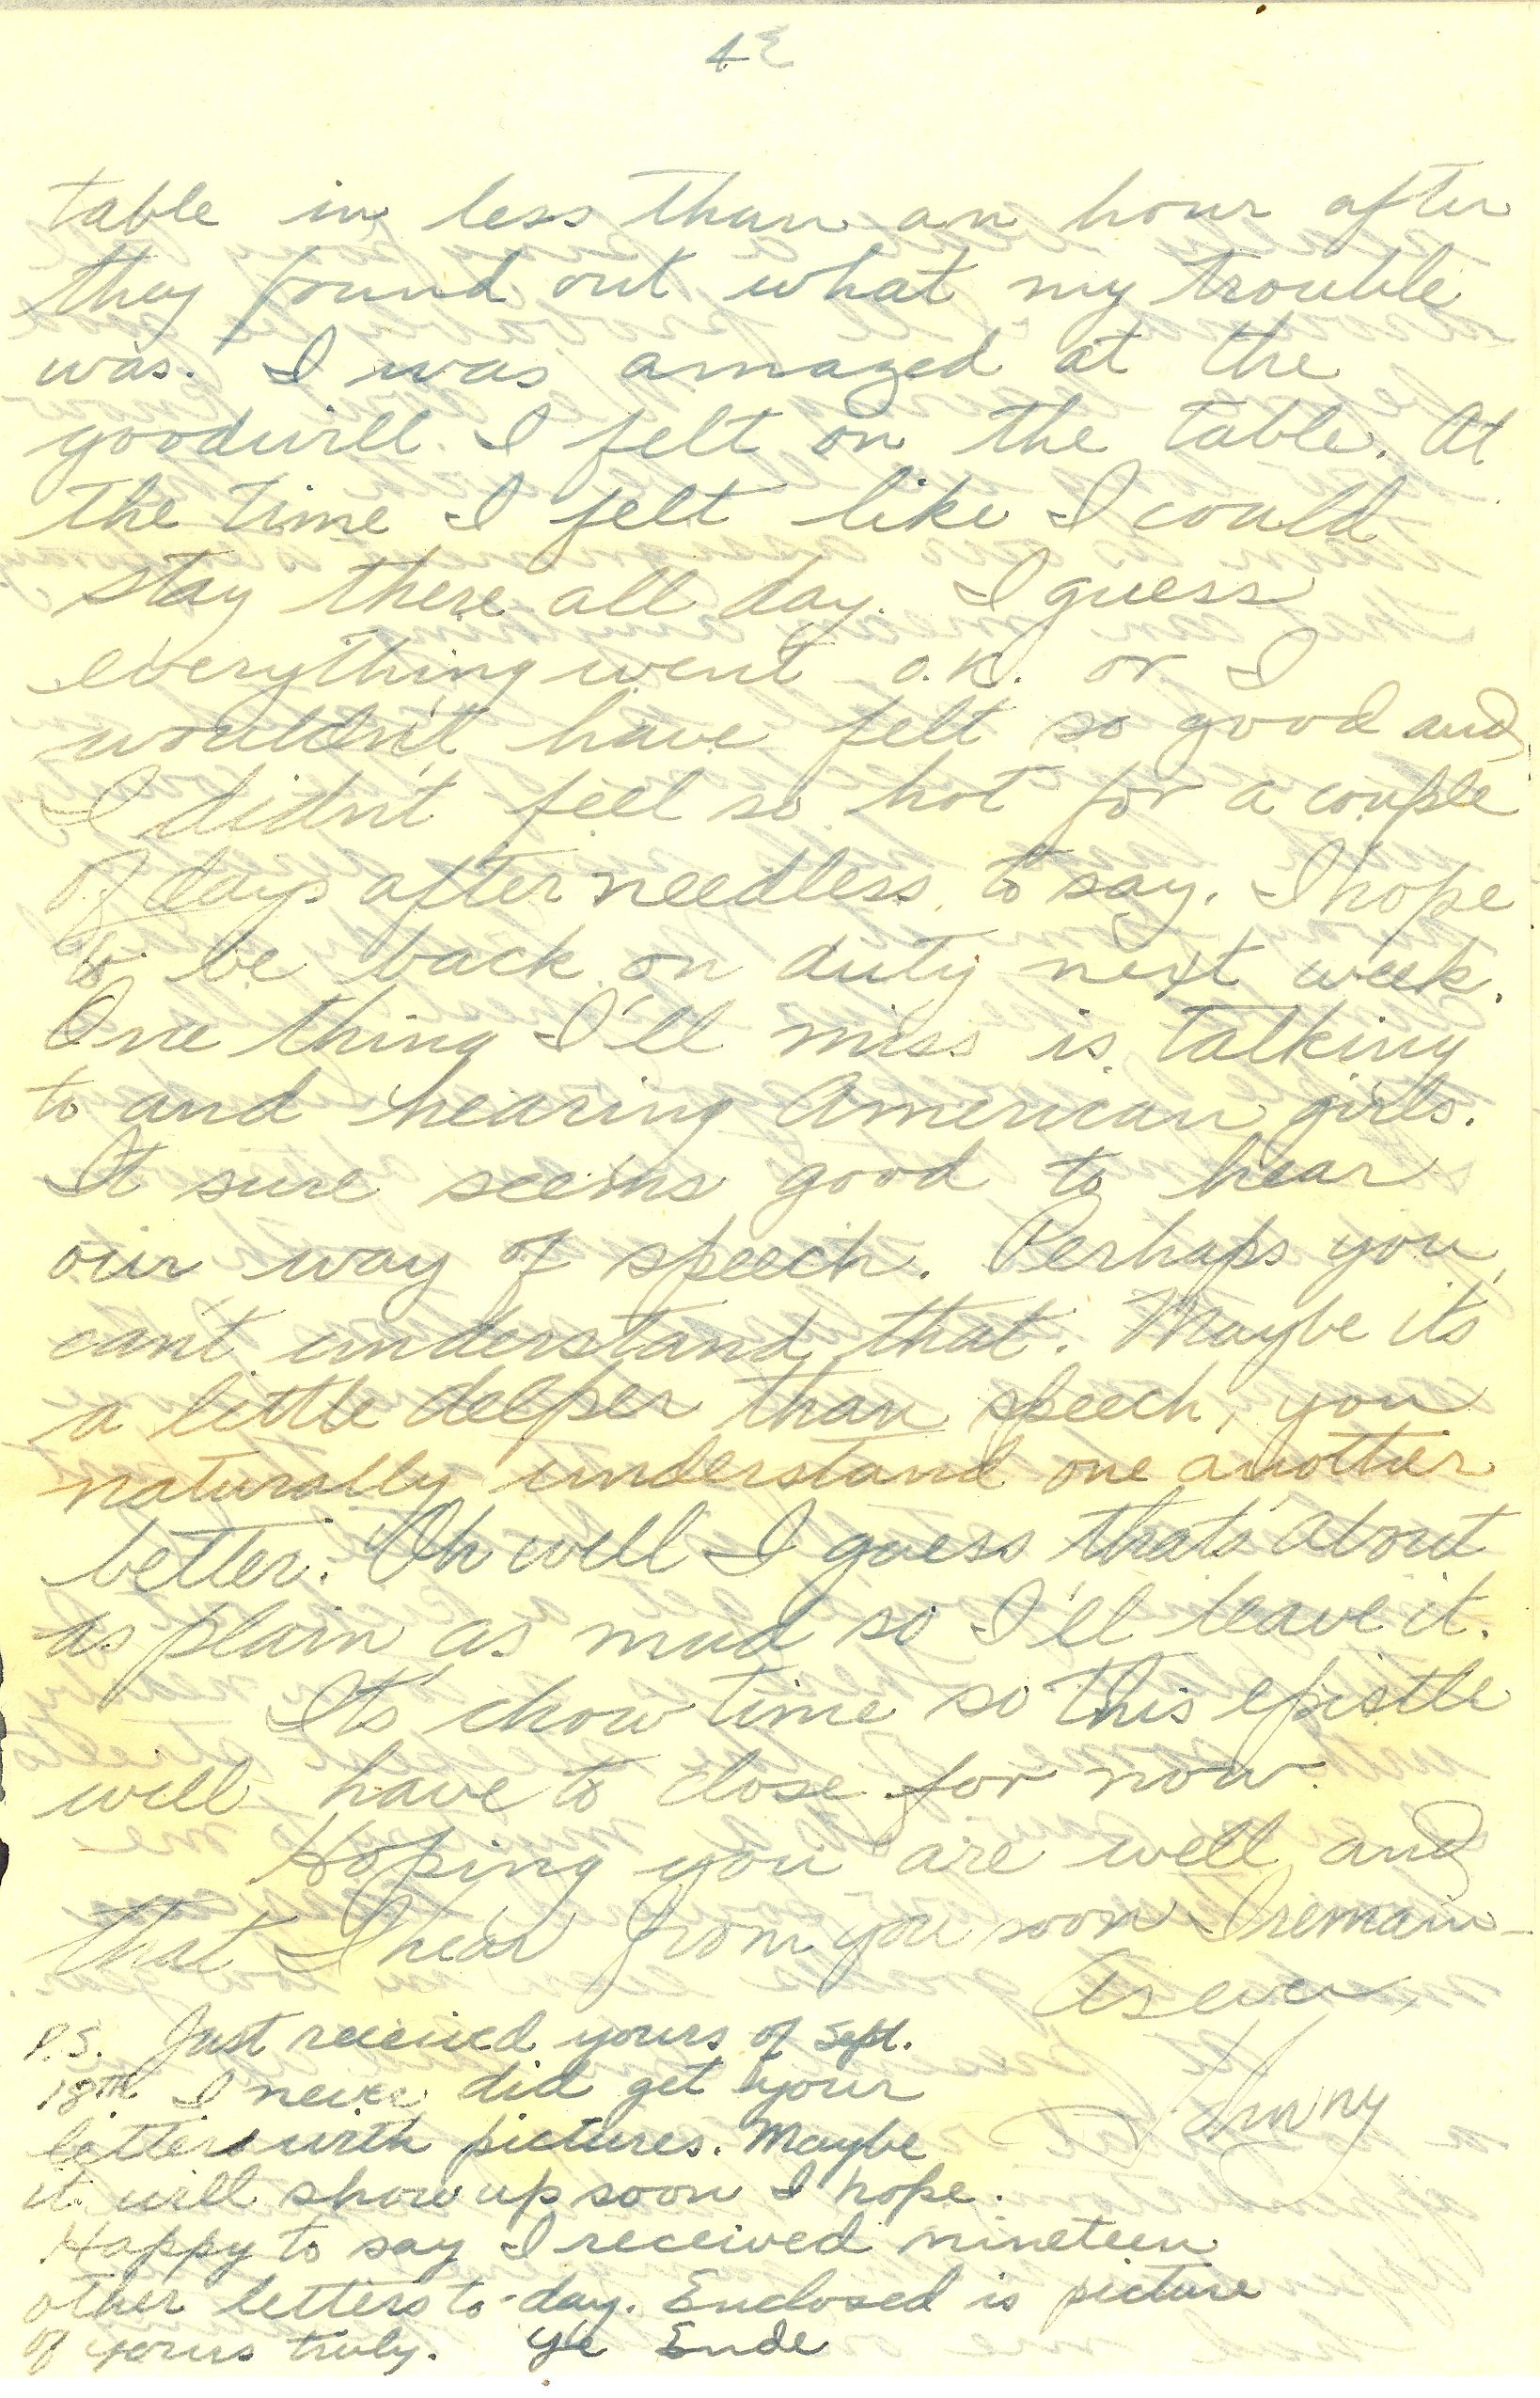 4
table in less than an hour after
they found out what my trouble
was. I was amazed at the
goodwill I felt on the table. At
the time I felt like I could
stay there all day. I guess
everything went o.k. or I
wouldn't have felt so good and
I didn't feel so hot for a couple
of days after needless to say. I hope
to be back on duty next week.
One thing I'll miss is talking
to and hearing American girls.
It sure seems good to hear
our way of speech. Perhaps you
can't understand that. Maybe it's
a little deeper than speech, you
naturally understand one another
better. Oh well I guess that's about
as plain as mud so I'll leave it.
It's chow time so this epistle
will have to close for now.
Hoping you are well and
that I hear from you soon I remain—
As ever,
P.S. Just received yours of Sept.
18TH. I never did get your
letters with pictures. Maybe
it will show up soon I hope.
Happy to say I received nineteen
other letters to-day. Enclosed is picture
of yours truly. Ye Ende